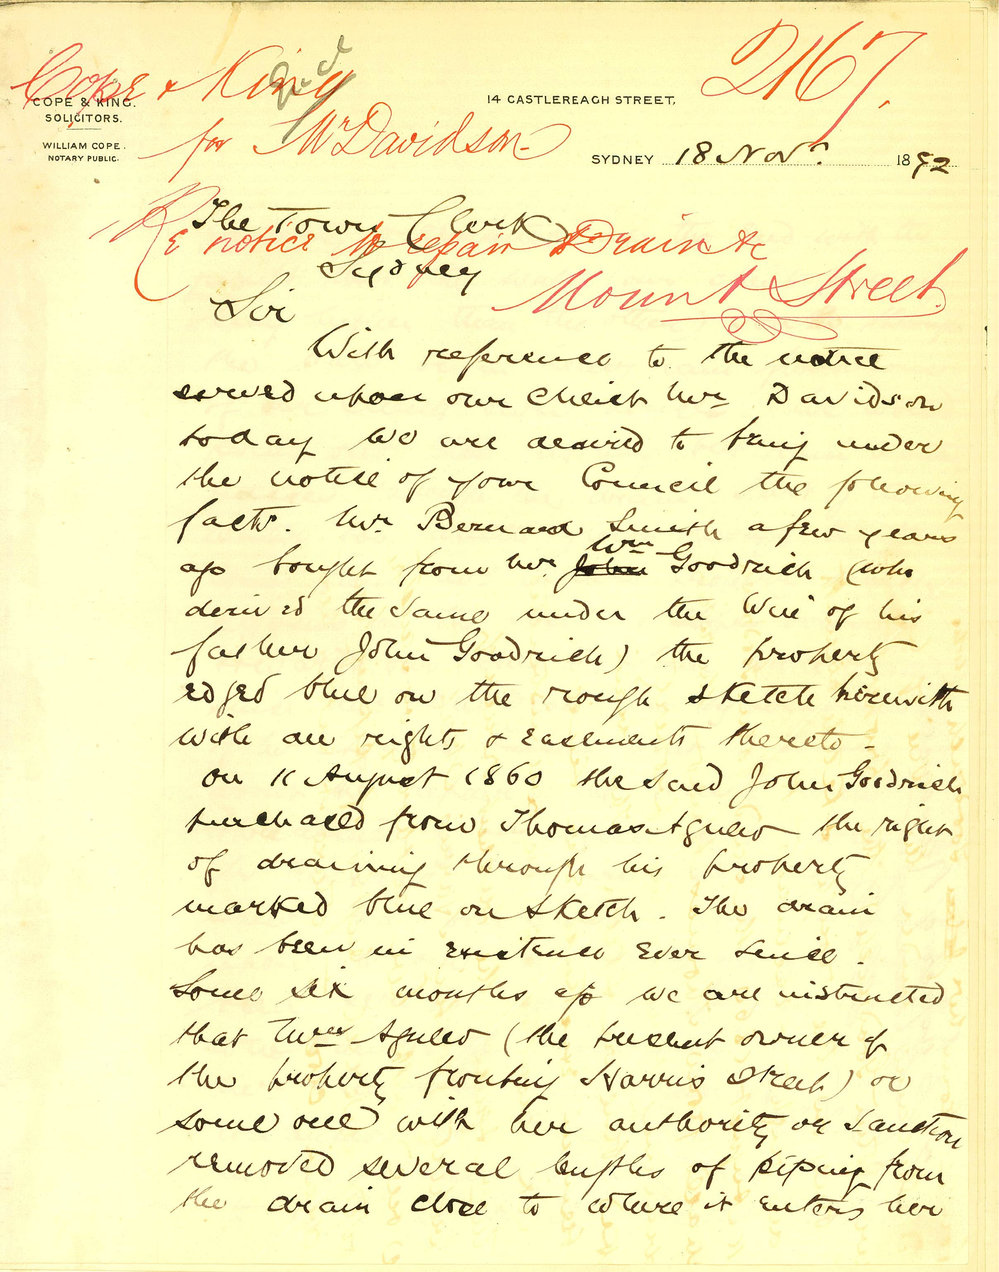 Cope & King
2167.
COPE & KING.
SOLICITORS.
14 CASTLEREAGH STREET,
for Mr Davidson
WILLIAM COPE.
NOTARY PUBLIC.
SYDNEY 18 Nov. 1892
The Town Clerk
Re notice to repair Drain &c
Sydney
Mount Street.
Sir
With reference to the notice
served upon our client Mr Davidson
today we are desired to bring under
the notice of your Council the following
facts. Mr Bernard Smith a few years
ago bought from Mr John Wm Goodrich (who
derived the same under the Will of his
father John Goodrich) the property
edged blue on the rough sketch herewith
with all rights & easements thereto -
on 11 August 1860 the said John Goodrich
purchased from Thomas Agnew the right
of draining through his property
marked blue on sketch. The drain
has been in existence ever since.
Some six months ago we are instructed
that Mrs Agnew (the present owner of
the property fronting Harris Street) or
some one with her authority or sanction
removed several lengths of piping from
the drain close to where it enters her